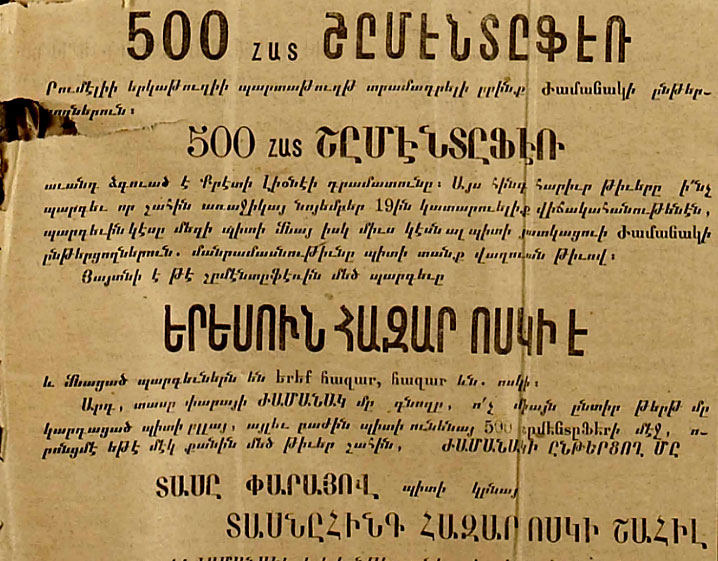 500 ՀԱՏ ՇԸՄԷՆՏԸՖԷՌ
Րումէլիի երկաթուղիի պարտաթուղթ տրամադրելի ըրինք Ժամանակի ընթեր-
ցողներուն։
500 ՀԱՏ ՇԸՄԷՆՏԸՖԷՌ
աւանդ ձգուած է Քրէտի Լիօնէի դրամատունը։ Այս հինգ հարիւր թիւերը ի՛նչ
պարգեւ որ շահին առաջիկայ նոյեմբեր 19ին կատարուելիք վիճակահանութենէն,
պարգեւին կէսը մեզի պիտի մնայ իսկ միւս կէսն ալ պիտի յատկացուի Ժամանակի
ընթերցողներուն. մանրամասնութիւնը պիտի տանք վաղուան թիւով։
Յայտնի է թէ շըմէնտըֆէռին մեծ պարգեւը
ԵՐԵՍՈՒՆ ՀԱԶԱՐ ՈՍԿԻ Է
և մնացած պարգեւներն են երեք հազար, հազար ևն. ոսկի։
Արդ, տասը փարայի ԺԱՄԱՆԱԿ մը գնողը, ո՛չ միայն ընտիր թերթ մը
կարդացած պիտի ըլլայ, այլեւ բաժին պիտի ունենայ 500 մէջ, ո-
րոնցմէ եթէ մէկ քանին մեծ թիւեր շահին, ԺԱՄԱՆԱԿԻ ԸՆԹԵՐՑՈՂ ՄԸ
ՏԱՍԸ ՓԱՐԱՅՈՎ պիտի կրնայ
ՏԱՍՆԸՀԻՆԳ ՀԱԶԱՐ ՈՍԿԻ ՇԱՀԻԼ